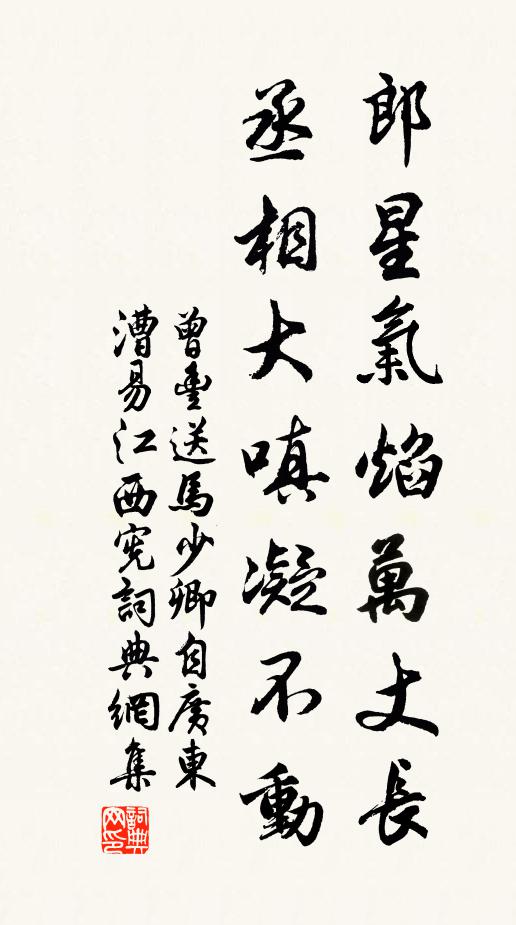 郎星氣焰萬丈長
丞相大嗔凝不動
曾豐送馬少卿自廣東
漕易江西宪詞典網集
詞典网印